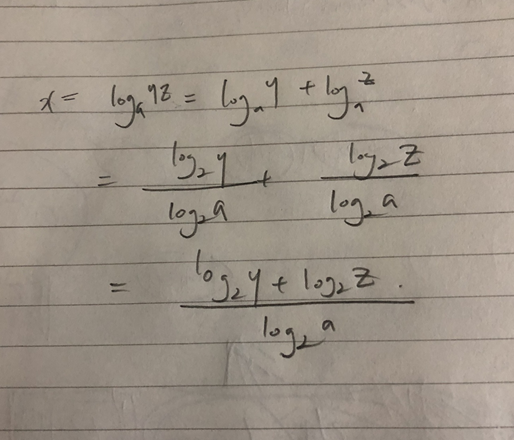 x = logₐ yz = logₐ y + logₐ z
= log₂ y / log₂ a + log₂ z / log₂ a
= log₂ y + log₂ z . / log₂ a